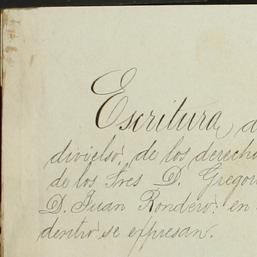 Escritura, d
divielso, de los derecho
de los Sres D. Gregori
D. Juan Rondero: en
dentro se expresan.